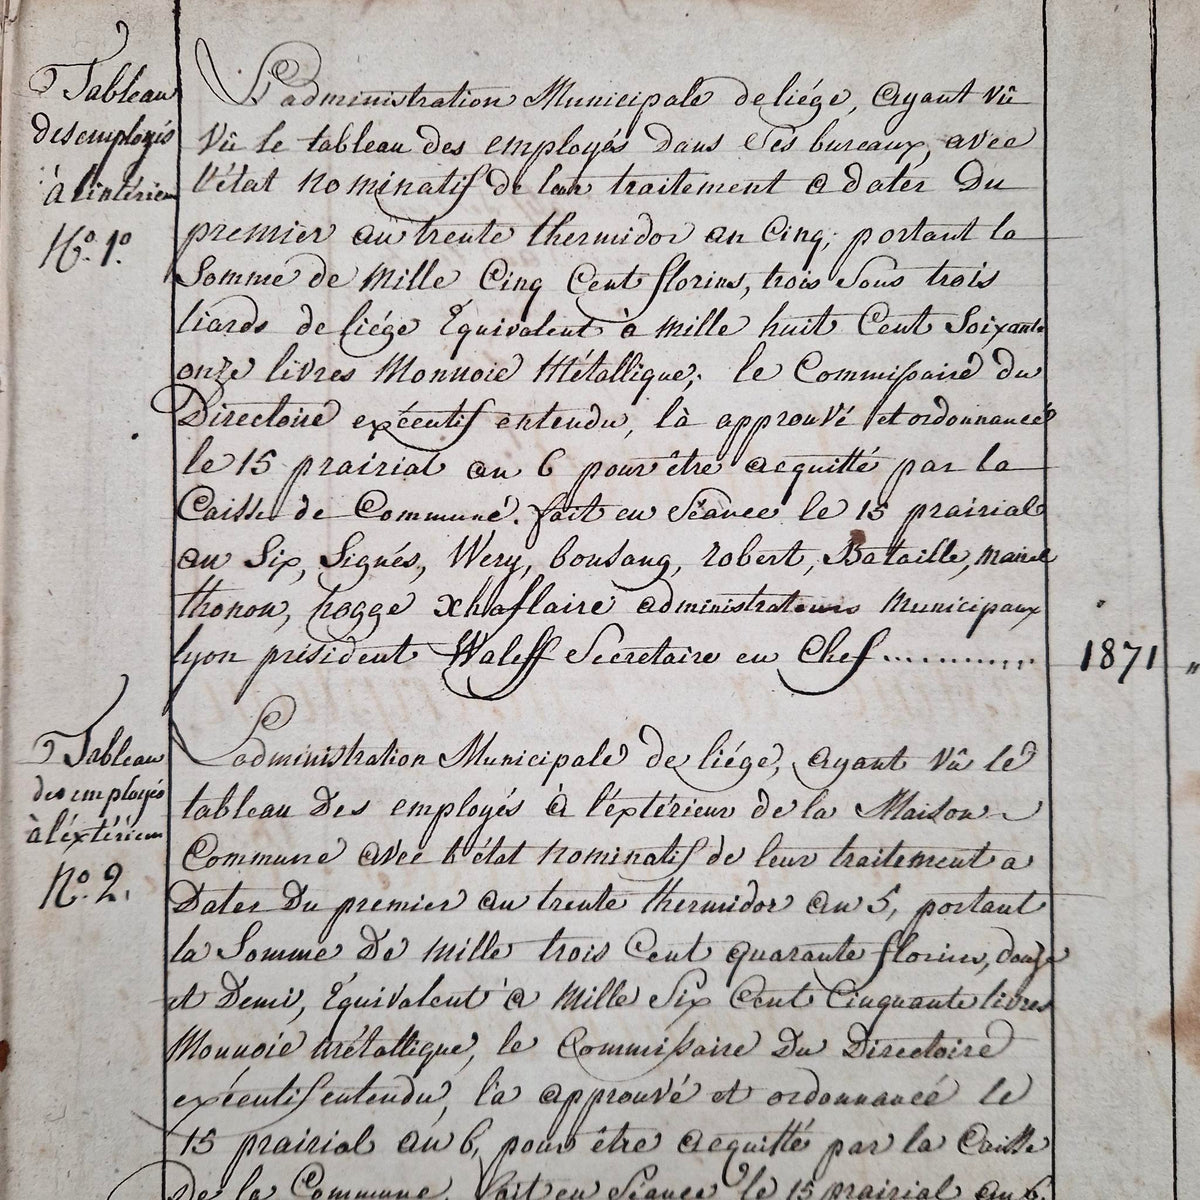 Tableau
des employés
à l'intérieur
N.º 1.º
L'administration Municipale de liége, ayant vû
vû le tableau des employés dans ses bureaux, avec
l'état nominatif de leur traitement a dater Du
premier au trente thermidor an Cinq, portant la
Somme de Mille Cinq Cent florins, trois sous trois
liards de liége Equivalent à mille huit Cent Soixante
onze livres Monnoie Métallique, le Commissaire du
Directoire exécutif entendu, là approuvé et ordonnancé
le 15 prairial an 6 pour être acquitté par la
Caisse de Commune. fait en Séance le 15 prairial
an Six, Signés, Wery, bousang, robert, Bataille,
thonon, hogge xhaflaire administrateurs Municipaux
lyon président Waleff Secretaire en Chef ............ 1871 "
Tableau
des employés
à l'éxtérieur
N.º 2.
L'administration Municipale de liége, ayant vû le
tableau Des employés à l'éxtérieur de la Maison
Commune avec l'état nominatif de leur traitement a
Dater Du premier au trente thermidor an 5, portant
la Somme De mille trois Cent quarante florins, douze
et Demi, Equivalent à Mille Six Cent Cinquante livres
Monnoie métallique, le Commissaire Du Directoire
exécutif entendu, l'a approuvé et ordonnancé le
15 prairial an 6, pour être acquitté par la Caisse
De la Commune, fait en Séance le 15 prairial an 6